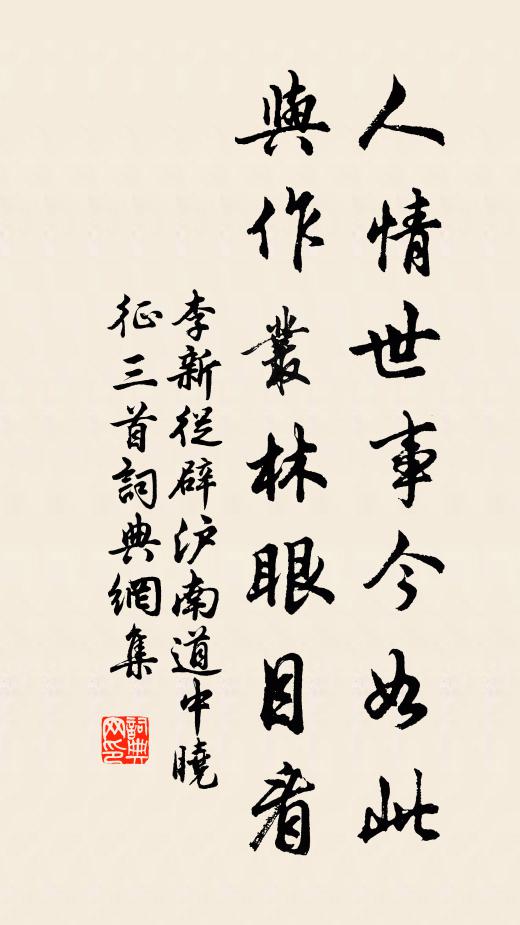 人情世事今如此
與作叢林眼目看
李新從辟沪南道中曉
征三首詞典網集
詞典
网印